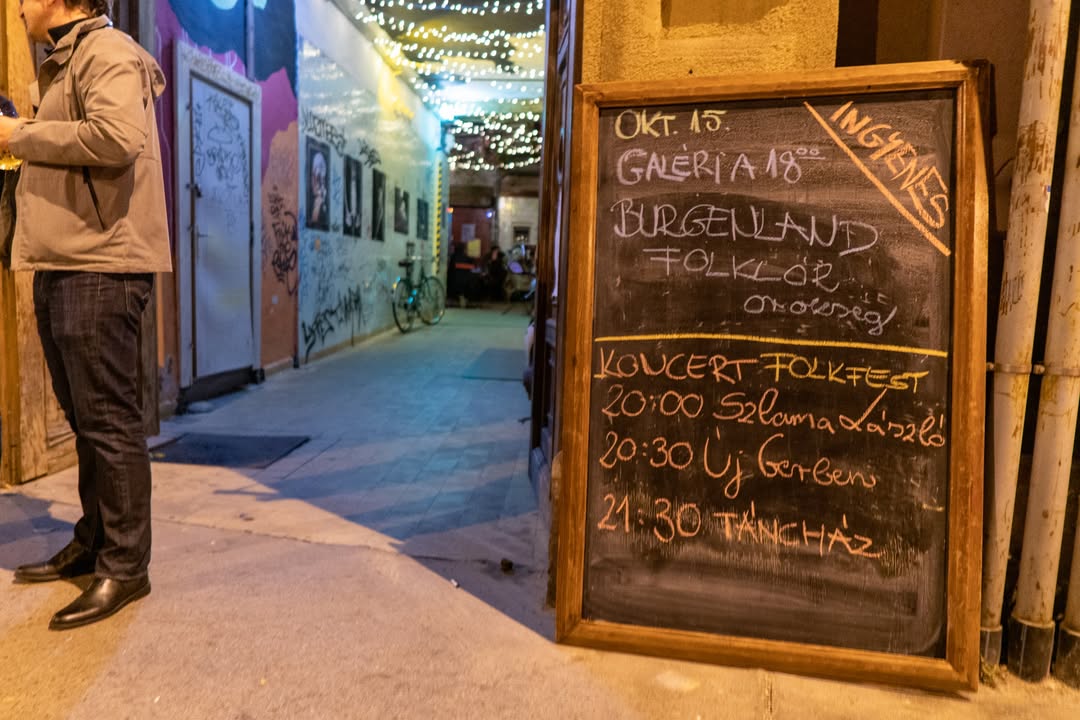 OKT. 15.
INGYENES
GALÉRIA 18⁰⁰
BURGENLAND
FOLKLÓR
örökség
KONCERT FOLKFEST
20:00 Szlama László
20:30 Új Gerben
21:30 TÁNCHÁZ